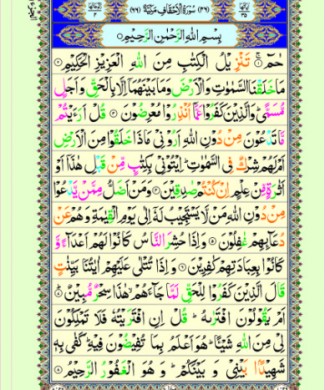 سُوْرَةُ الْاَحْقَافِ مَكِّيَّةٌ
بِسْمِ اللّٰهِ الرَّحْمٰنِ الرَّحِيْمِ
حٰمٓ ۝ تَنْزِيْلُ الْكِتٰبِ مِنَ اللّٰهِ الْعَزِيْزِ الْحَكِيْمِ ۝
مَا خَلَقْنَا السَّمٰوٰتِ وَالْاَرْضَ وَمَا بَيْنَهُمَاۤ اِلَّا بِالْحَقِّ وَاَجَلٍ
مُّسَمًّى ؕ وَالَّذِيْنَ كَفَرُوْا عَمَّاۤ اُنْذِرُوْا مُعْرِضُوْنَ ۝ قُلْ اَرَءَيْتُمْ
مَّا تَدْعُوْنَ مِنْ دُوْنِ اللّٰهِ اَرُوْنِيْ مَاذَا خَلَقُوْا مِنَ الْاَرْضِ
اَمْ لَهُمْ شِرْكٌ فِى السَّمٰوٰتِ ؕ اِيْتُوْنِيْ بِكِتٰبٍ مِّنْ قَبْلِ هٰذَاۤ اَوْ
اَثٰرَةٍ مِّنْ عِلْمٍ اِنْ كُنْتُمْ صٰدِقِيْنَ ۝ وَمَنْ اَضَلُّ مِمَّنْ يَّدْعُوْا
مِنْ دُوْنِ اللّٰهِ مَنْ لَّا يَسْتَجِيْبُ لَهٗۤ اِلٰى يَوْمِ الْقِيٰمَةِ وَهُمْ عَنْ
دُعَآئِهِمْ غٰفِلُوْنَ ۝ وَاِذَا حُشِرَ النَّاسُ كَانُوْا لَهُمْ اَعْدَآءً وَّ
كَانُوْا بِعِبَادَتِهِمْ كٰفِرِيْنَ ۝ وَاِذَا تُتْلٰى عَلَيْهِمْ اٰيٰتُنَا بَيِّنٰتٍ
قَالَ الَّذِيْنَ كَفَرُوْا لِلْحَقِّ لَمَّا جَآءَهُمْ ۙ هٰذَا سِحْرٌ مُّبِيْنٌ ۝
اَمْ يَقُوْلُوْنَ افْتَرٰىهُ ؕ قُلْ اِنِ افْتَرَيْتُهٗ فَلَا تَمْلِكُوْنَ
لِيْ مِنَ اللّٰهِ شَيْئًا ؕ هُوَ اَعْلَمُ بِمَا تُفِيْضُوْنَ فِيْهِ ؕ كَفٰى بِهٖ
شَهِيْدًاۢ بَيْنِيْ وَبَيْنَكُمْ ؕ وَهُوَ الْغَفُوْرُ الرَّحِيْمُ ۝